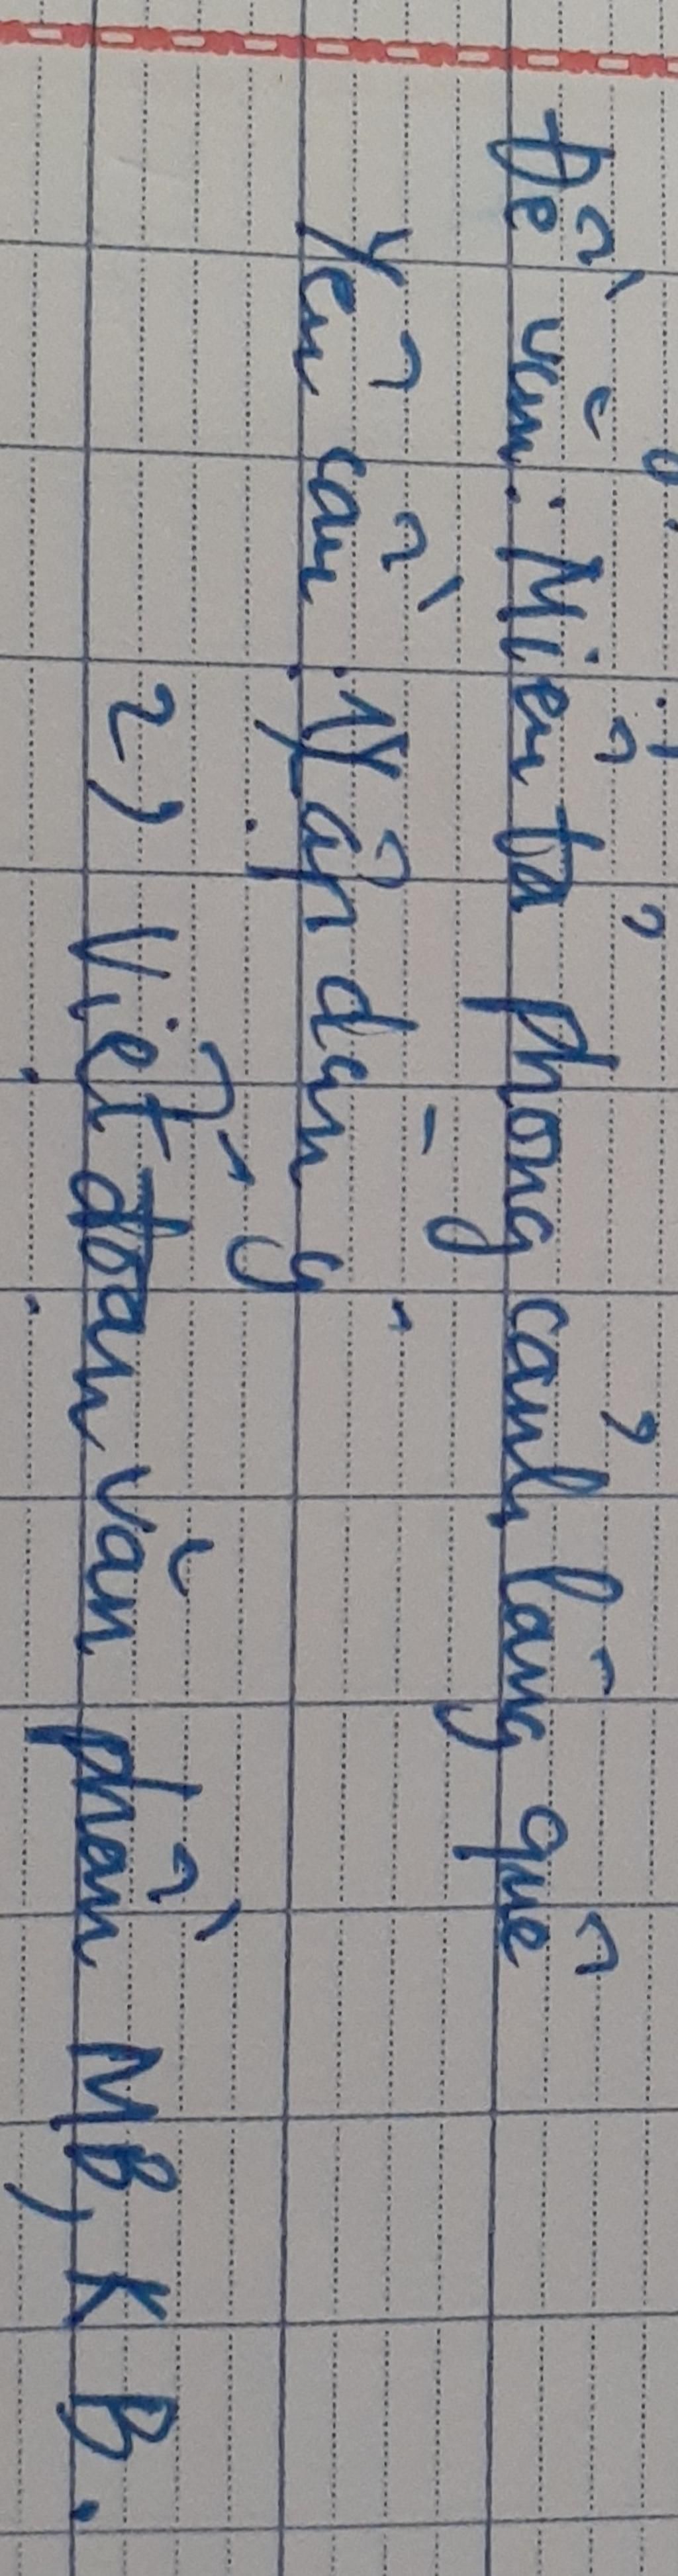 Đề văn: Miêu tả phong cảnh làng quê
Yêu cầu: 1) Lập dàn ý
2) Viết đoạn văn phần MB, KB.